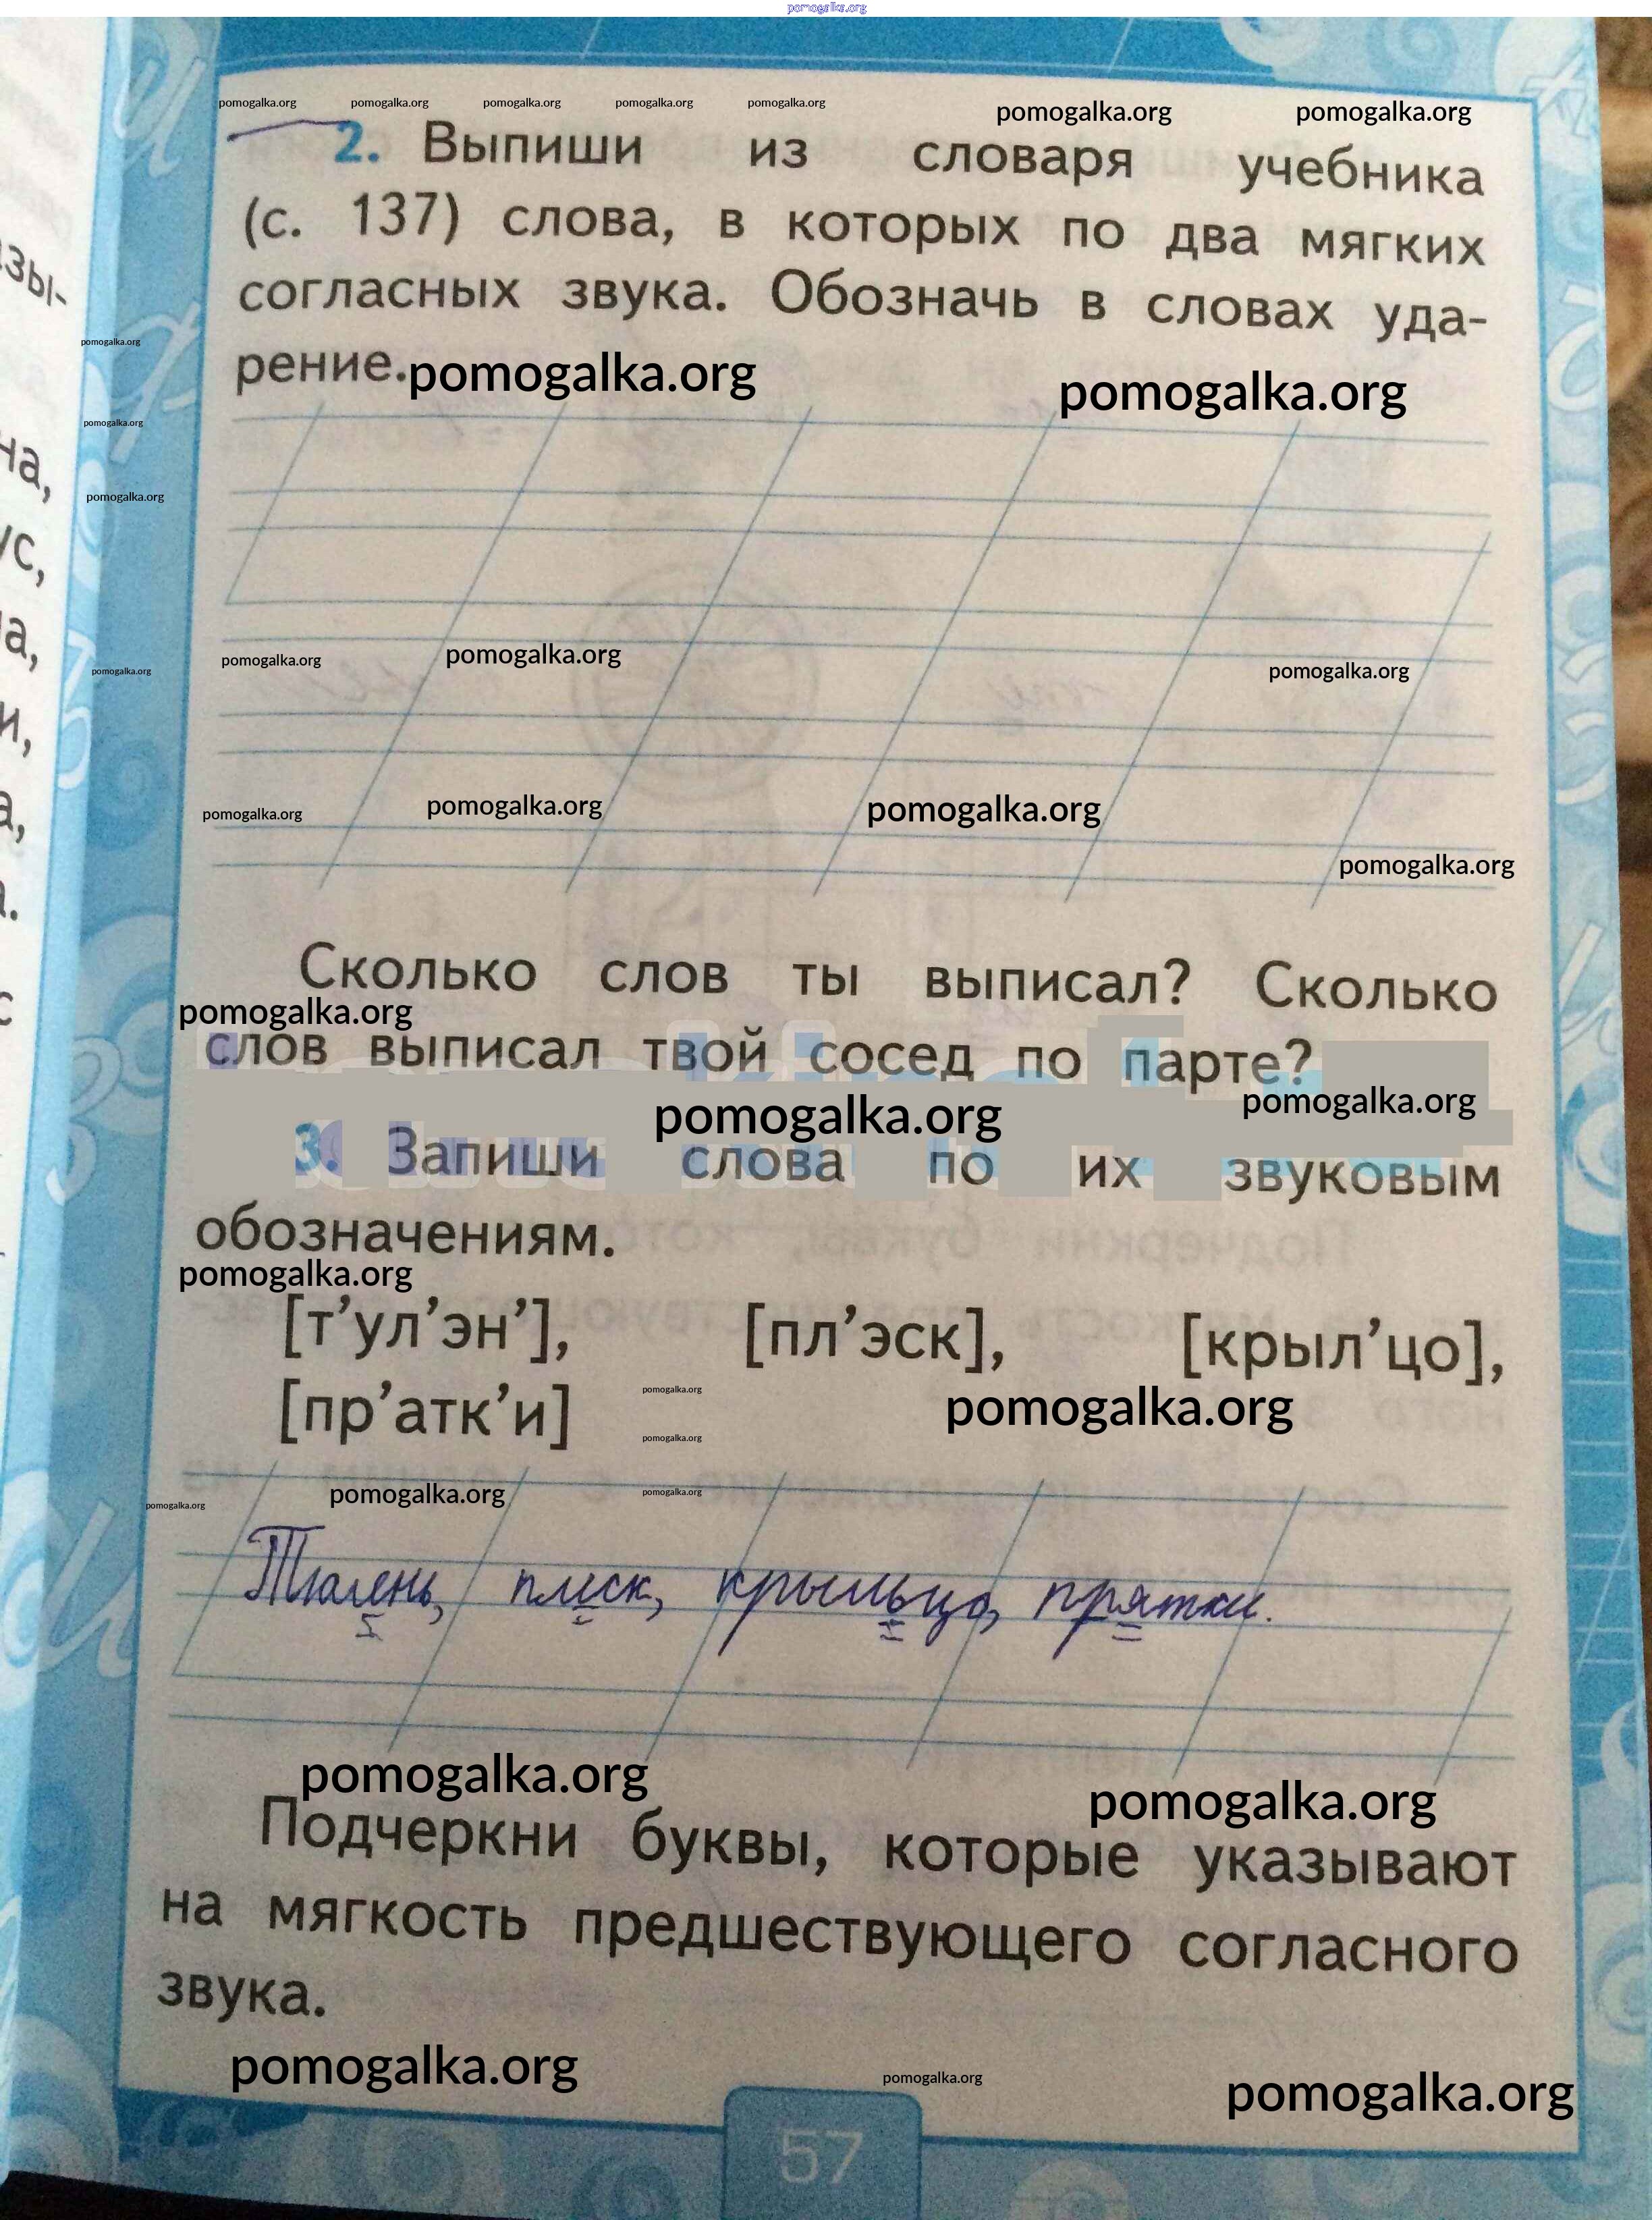 pomogalka.org
pomogalka.org pomogalka.org pomogalka.org pomogalka.org pomogalka.org pomogalka.org pomogalka.org
2. Выпиши из словаря учебника
(с. 137) слова, в которых по два мягких
согласных звука. Обозначь в словах уда-
pomogalka.org
рение. pomogalka.org pomogalka.org
pomogalka.org
pomogalka.org
pomogalka.org pomogalka.org pomogalka.org pomogalka.org
pomogalka.org pomogalka.org pomogalka.org
pomogalka.org
Сколько слов ты выписал? Сколько
pomogalka.org
слов выписал твой сосед по парте?
pomogalka.org pomogalka.org
3. Запиши слова по их звуковым
обозначениям.
pomogalka.org
[т’ул’эн’], [пл’эск], [крыл’цо],
pomogalka.org
[пр’атк’и] pomogalka.org
pomogalka.org
pomogalka.org pomogalka.org pomogalka.org
Тюлень, плеск, крыльцо, прятки.
pomogalka.org pomogalka.org
Подчеркни буквы, которые указывают
на мягкость предшествующего согласного
звука.
pomogalka.org pomogalka.org pomogalka.org
57